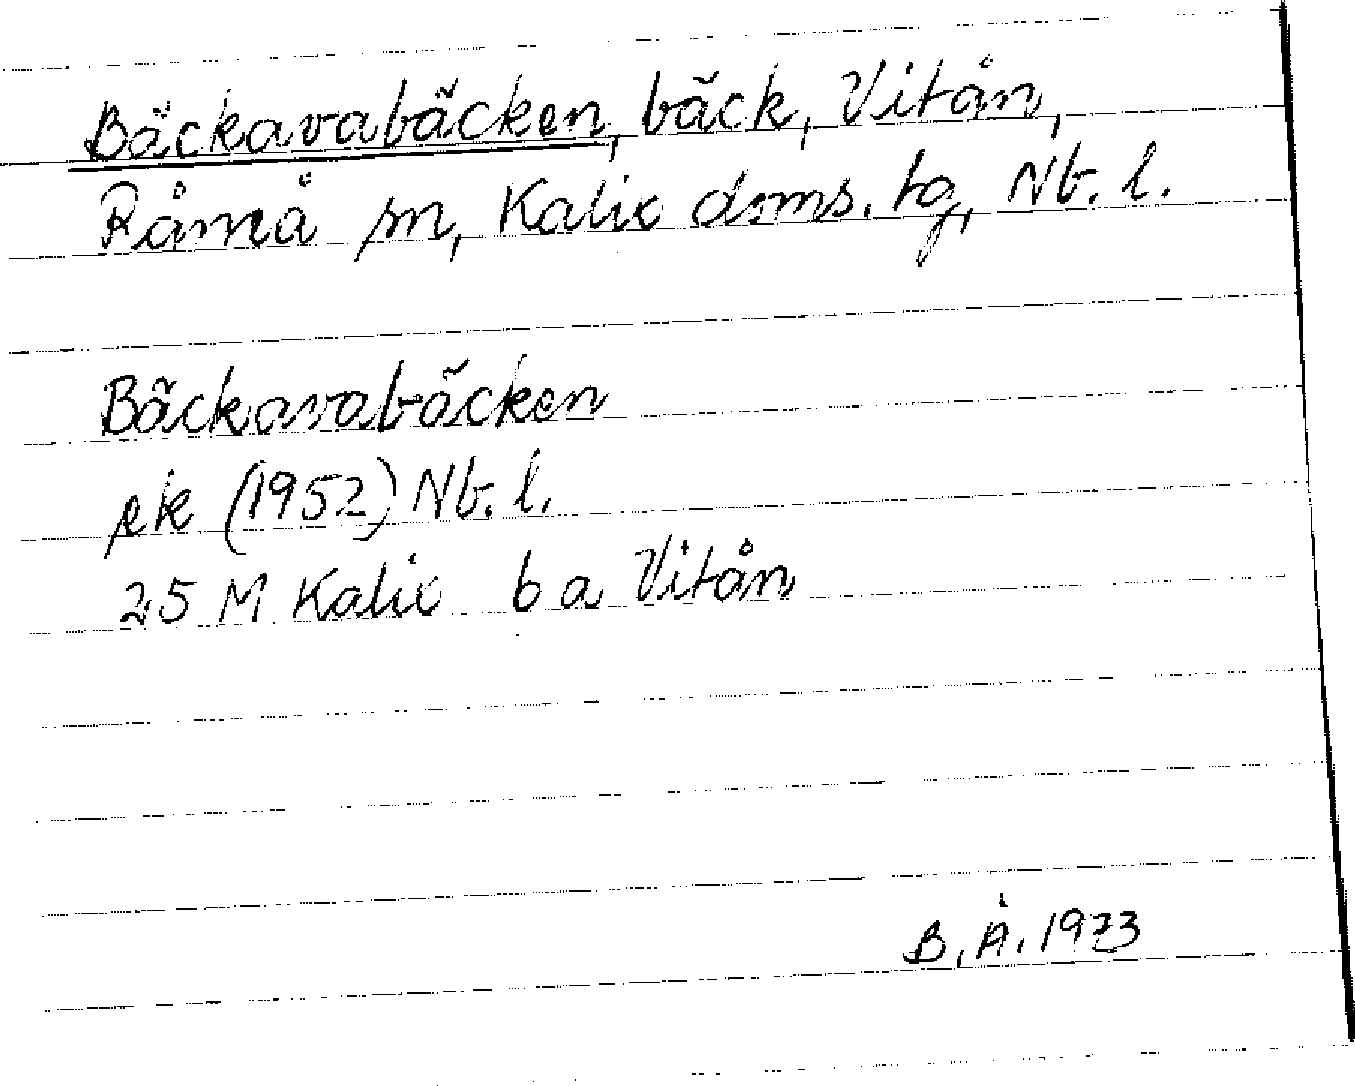 Bäckavabäcken, bäck, Vitån,
Råneå sn, Kalix doms. tg, Nb. l.
Bäckavabäcken
ek (1952) Nb. l.
25 M Kalix b a Vitån
B. Å. 1973